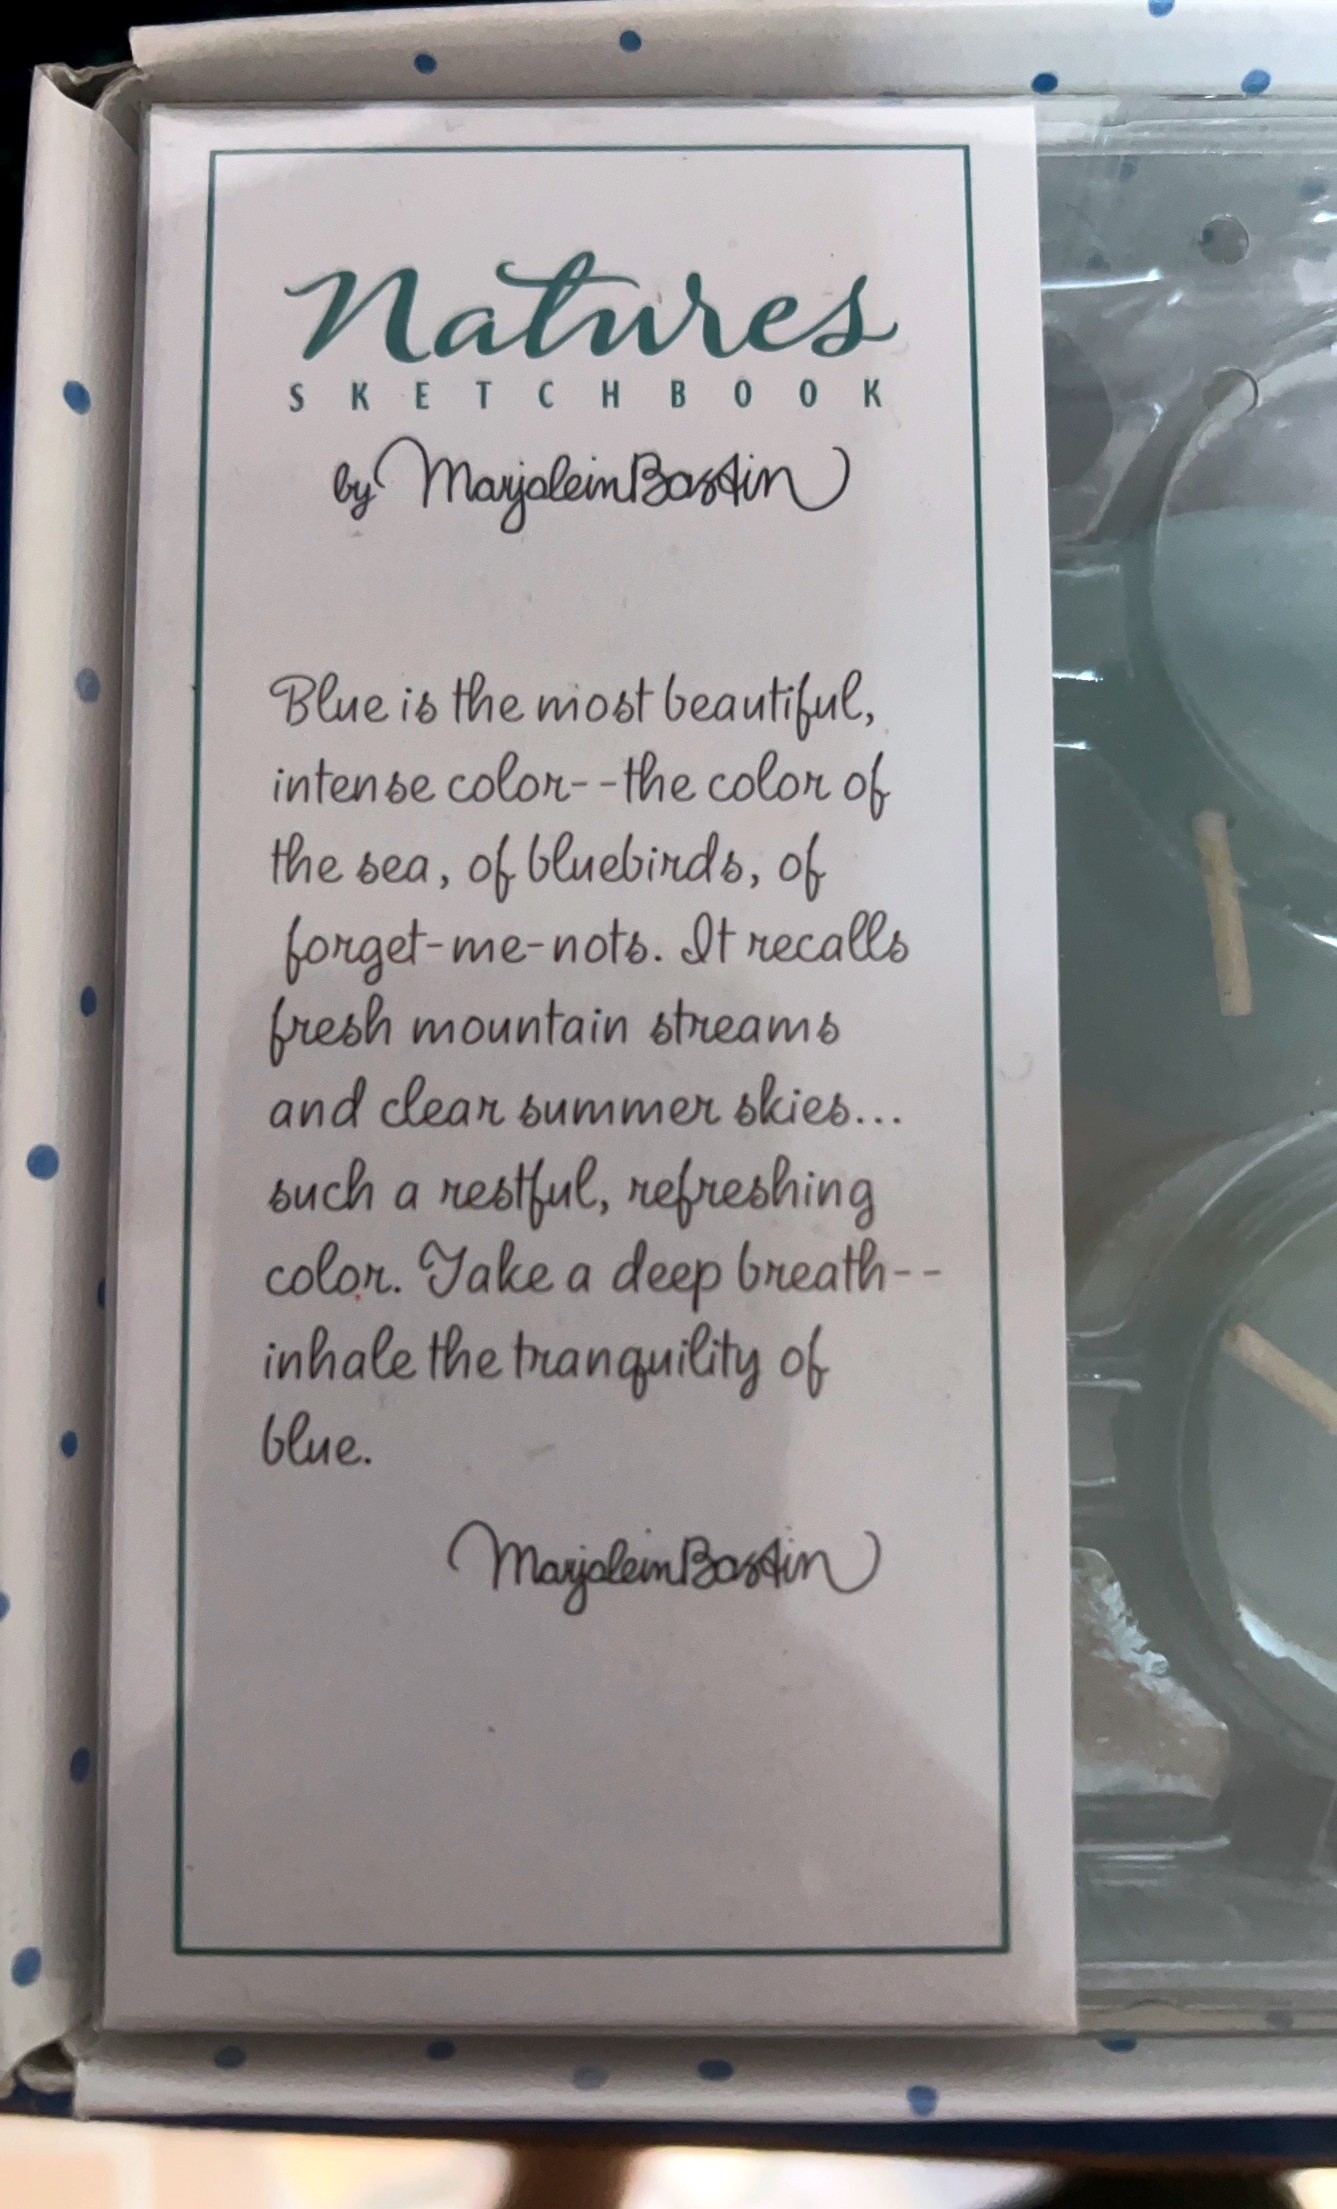 Natures
SKETCHBOOK
by Marjolein Bastin
Blue is the most beautiful,
intense color--the color of
the sea, of bluebirds, of
forget-me-nots. It recalls
fresh mountain streams
and clear summer skies...
such a restful, refreshing
color. Take a deep breath--
inhale the tranquility of
blue.
Marjolein Bastin